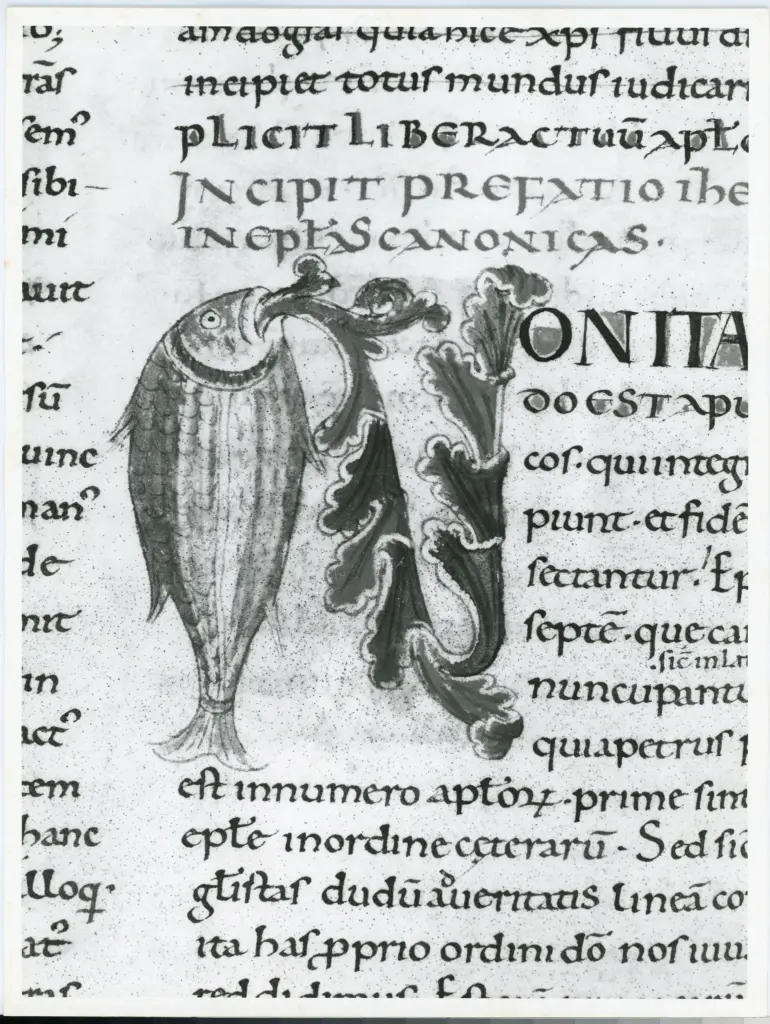 o;
ras̄
semꝰ
sibi–
mi
uit
sū
uinc
nanꝰ
de
nit
in
actꝰ
tem
hanc
lloq·
at̄
ms
am quia hic e xp̄i
incipiet totus mundus iudicari
PLICIT LIBER ACTUŪ APL̄O
INCIPIT PREFATIO IHE
IN EPL̄AS CANONICAS·
NON ITA
DO EST APU
cos· qui integr
piunt· et fidē
sectantur· Ep
septē· que ca
·sic̄ in Lat
nuncupantu
quia petrus p
est in numero apl̄oꝝ· prime sint
epl̄e in ordine ceterarū· Sed sic
gl̄istas dudū a᷑ueritatis lineā co
ita has ꝓprio ordini dō nos iuu